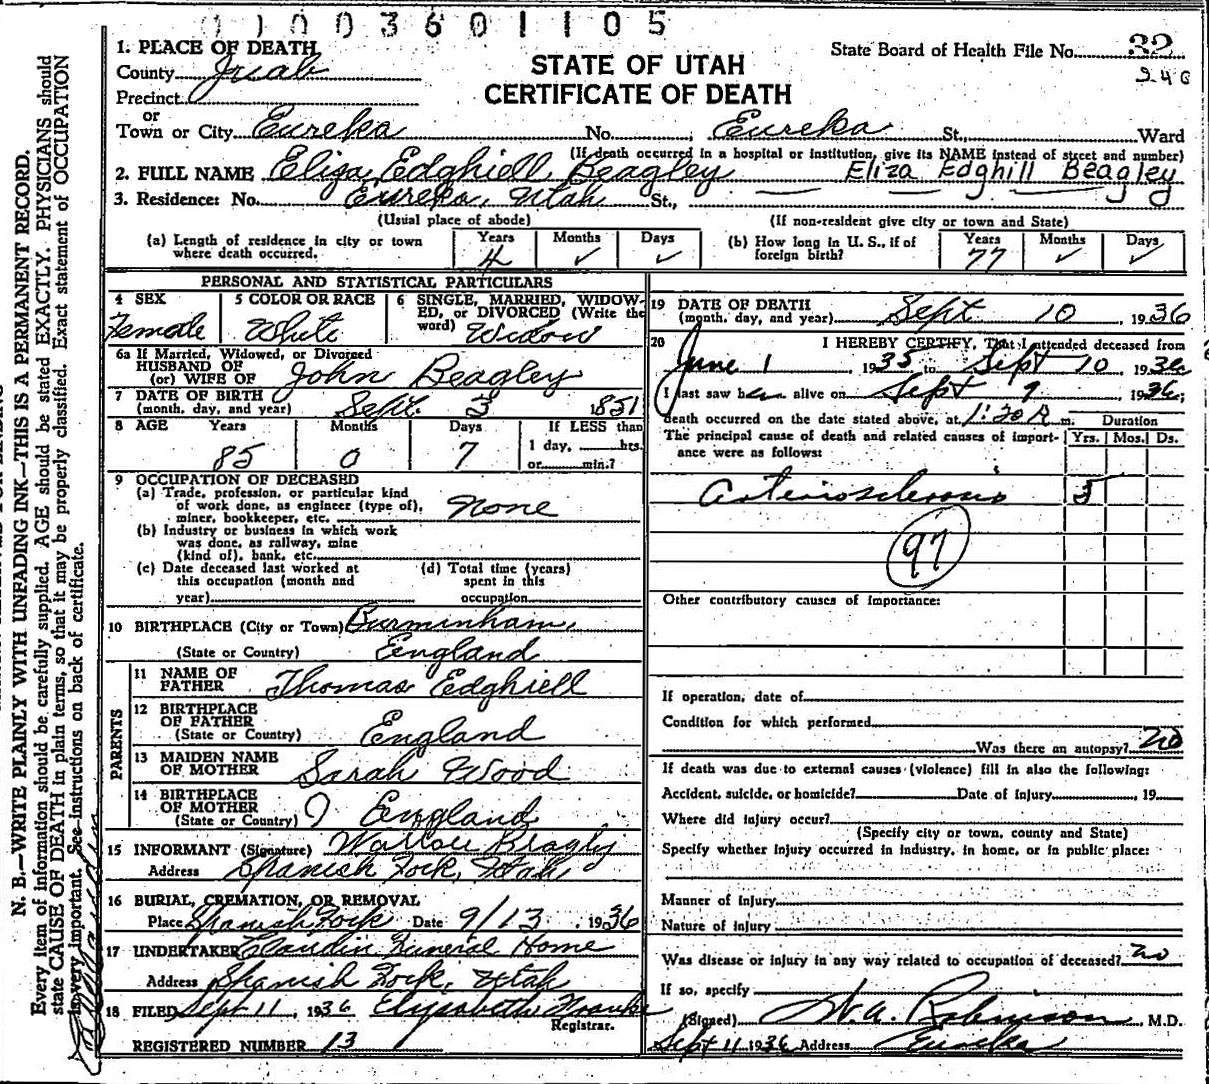 01003601105
STATE OF UTAH
CERTIFICATE OF DEATH
State Board of Health File No. 32
246
1. PLACE OF DEATH
County Juab
Precinct
or
Town or City Eureka No. , Eureka St. Ward
(If death occurred in a hospital or institution, give its NAME instead of street and number)
2. FULL NAME Eliza Edghiell Beagley Eliza Edghill Beagley
3. Residence: No. Eureka, Utah St.,
(Usual place of abode) (If non-resident give city or town and State)
(a) Length of residence in city or town where death occurred. Years 4 Months ✓ Days ✓
(b) How long in U. S., if of foreign birth? Years 77 Months ✓ Days ✓
PERSONAL AND STATISTICAL PARTICULARS
4 SEX Female
5 COLOR OR RACE White
6 SINGLE, MARRIED, WIDOWED, or DIVORCED (Write the word) Widow
6a If Married, Widowed, or Divorced
HUSBAND OF
(or) WIFE OF John Beagley
7 DATE OF BIRTH
(month, day, and year) Sept. 3 1851
8 AGE Years 85 Months 0 Days 7 If LESS than
1 day, hrs.
or min.?
9 OCCUPATION OF DECEASED
(a) Trade, profession, or particular kind
of work done, as engineer (type of),
miner, bookkeeper, etc. None
(b) Industry or business in which work
was done, as railway, mine
(kind of), bank, etc.
(c) Date deceased last worked at
this occupation (month and
year)
(d) Total time (years)
spent in this
occupation
10 BIRTHPLACE (City or Town) Burminham,
(State or Country) England
PARENTS
11 NAME OF
FATHER Thomas Edghiell
12 BIRTHPLACE
OF FATHER
(State or Country) England
13 MAIDEN NAME
OF MOTHER Sarah Wood
14 BIRTHPLACE
OF MOTHER
(State or Country) England
15 INFORMANT (Signature) Beagley
Address Spanish Fork, Utah
16 BURIAL, CREMATION, OR REMOVAL
Place Spanish Fork Date 9/13, 1936
17 UNDERTAKER Claudin Funeral Home
Address Spanish Fork, Utah
18 FILED Sept 11, 1936 Elizabeth
Registrar.
REGISTERED NUMBER 13
19 DATE OF DEATH
(month, day, and year) Sept 10, 1936
20 I HEREBY CERTIFY, That I attended deceased from
June 1, 1935 to Sept 10, 1936
I last saw her alive on Sept 9, 1936;
death occurred on the date stated above, at 1:20 A m.
Duration
The principal cause of death and related causes of importance were as follows: Yrs. Mos. Ds.
Arteriosclerosis 5
97
Other contributory causes of importance:
If operation, date of
Condition for which performed
Was there an autopsy? no
If death was due to external causes (violence) fill in also the following:
Accident, suicide, or homicide? Date of injury , 19
Where did injury occur?
(Specify city or town, county and State)
Specify whether injury occurred in industry, in home, or in public place:
Manner of injury
Nature of injury
Was disease or injury in any way related to occupation of deceased? no
If so, specify
(Signed) W. A. Robinson, M.D.
Sept 11 1936 Address Eureka
N. B.—WRITE PLAINLY WITH UNFADING INK—THIS IS A PERMANENT RECORD.
Every item of information should be carefully supplied. AGE should be stated EXACTLY. PHYSICIANS should
state CAUSE OF DEATH in plain terms, so that it may be properly classified. Exact statement of OCCUPATION
is very important. See instructions on back of certificate.